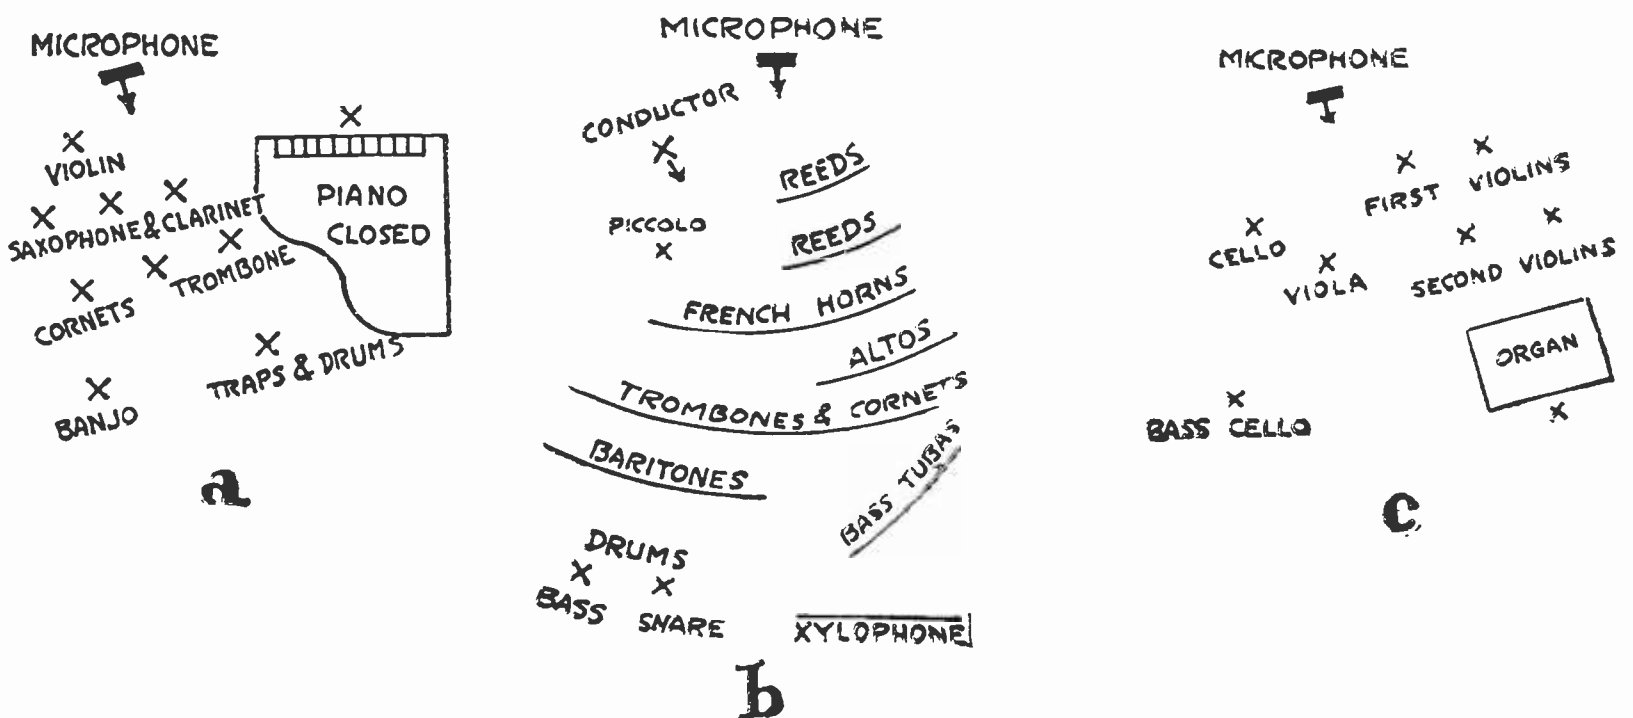 MICROPHONE
VIOLIN
SAXOPHONE & CLARINET
TROMBONE
CORNETS
TRAPS & DRUMS
BANJO
PIANO
CLOSED
a
MICROPHONE
CONDUCTOR
PICCOLO
REEDS
REEDS
FRENCH HORNS
ALTOS
TROMBONES & CORNETS
BARITONES
BASS TUBAS
DRUMS
BASS
SNARE
XYLOPHONE
b
MICROPHONE
FIRST VIOLINS
CELLO
VIOLA
SECOND VIOLINS
ORGAN
BASS CELLO
c